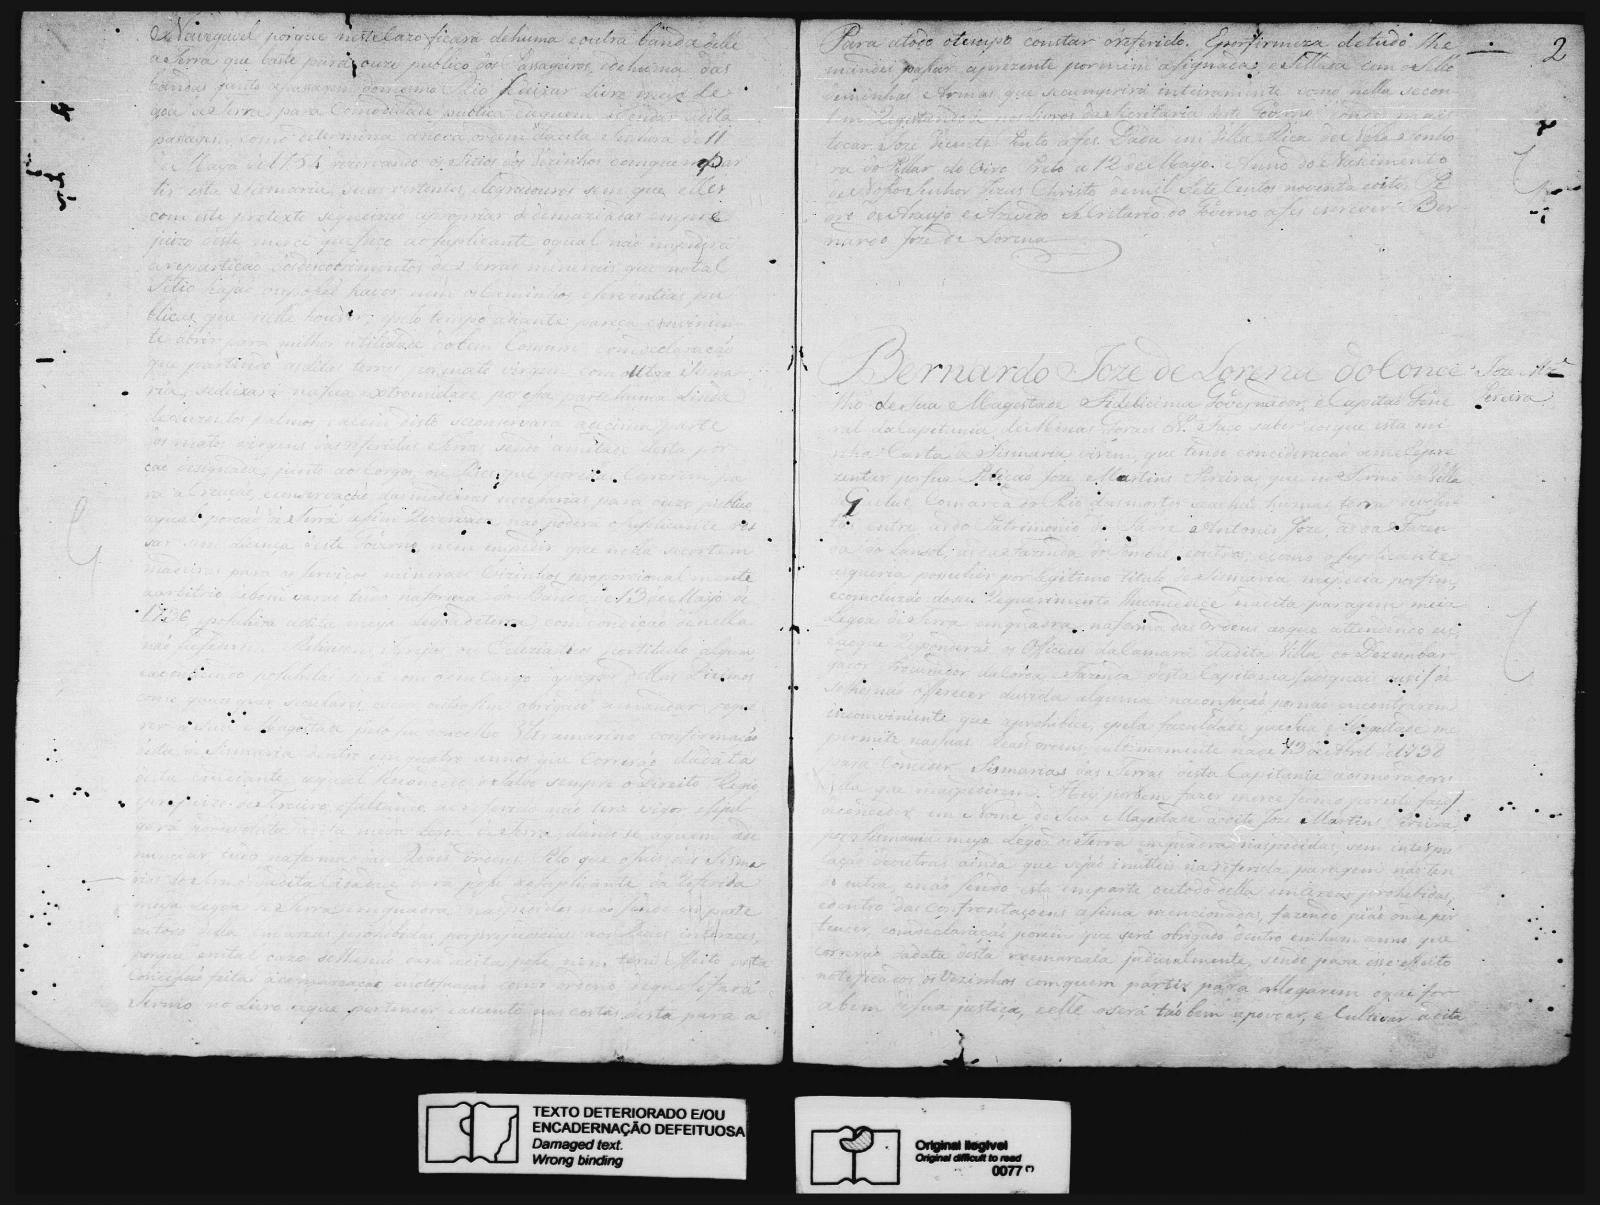 Navegavel porque neste Cazo ficará de huma e outra banda delle
a Terra que baste para ouzo publico dos Passageiros, e de huma das
bandas junto a passagem do mesmo Sitio ficar Livre meya Le
goa de terra para comodidade publica e de quem a
passagem, como determina a nova ordem da dita Senhora de 11
de Março de 1754 rezervando os Sitios dos Vezinhos com quem par
tir esta Sismaria, suas vertentes, e Logradouros sem que elles
com este pretexto se queirão apropriar de demaziadas em pre
juizo desta mercê que faço ao suplicante o qual não impedirá
a repartição dos descobrimentos de terras mineraes que no tal
Sitio hajão ou possão haver nem os Caminhos e serventias pu
blicas que nelle houver, e pelo tempo adiante pareça conveniente
te abrir para melhor utilidade do bem Comum com declaração
que partindo as ditas terras por mato virgem com outra Sisma
ria, se deixará na sua extremidade por essa parte huma Linha
de duzentos palmos e alem disto se conservará a decima parte
os matos virgens das referidas Terras sendo ametade desta por
ção designada, junto ao corgos, ou Rios que por elle correrem, pa
ra a creação, e conservação das madeiras necessarias para ouzo publico
a qual porção de terra assim Rezervada não poderá o suplicante ro
sar sem Licença deste Governo, nem empedir que nella se cortem
madeiras para os serviços mineraes Vizinhos proporcionalmente
a arbitrio e de bom varão tudo na forma do Bando de 13 de Mayo de
1736 e possuira a dita meya Legoa de terra com condição de nella
não sucederem Religioens, Igrejas ou Eclesiasticos por titulo algum,
e acontecendo possuhilas será com o encargo de pagar dellas Dizimos
como quaesquer seculares, e será outro sim obrigado a mandar reque
rer a Sua Magestade pelo seu concelho Ultramarino confirmação
desta de Sismaria dentro em quatro annos que correrão da data
desta em diante, a qual lhe concedo, salvo sempre o Direito Regio
e prejuizo de terceiro, e faltando ao referido não terá vigor e se jul
gará por devoluta a dita meya Legoa de Terra, dando-se a quem a de
nunciar tudo na forma das Reaes ordens. Pelo que o Juis das Sisma
rias do termo da dita Cidade dará posse ao suplicante da Referida
meya Legoa de Terra em quadra nas pedidas não sendo em parte
ou todo della em areas prohibidas por prejudiciaes aos Reaes interesses,
porque em tal cazo se lhe não dará a dita posse nem terá effeito esta
Concepção feita a demarcação e notificação como ordeno de que se fará
Termo no Livro a que pertencer e assento nas costas desta para a
2
Para atodo otempo constar oreferido. Eporfirmeza detudo lhe
mandei passar aprezente por mim asignada, e Sellada com o Sello
de minhas Armas, que se cumprirá inteiramente como nella se con
tem Registando-se nos livros da Secretaria deste Governo e onde mais
tocar Joze Vicente Pinto afes. Dada em Villa Rica de Nossa Senho
ra do Pillar do Oiro Preto a 12 de Mayo. Anno do Nascimento
de Nosso Senhor Jezus Christo de mil Sete Centos noventa e oito. Pe
dro de Araujo e Azevedo Secretario do Governo afes escrever. Ber
nardo Joze de Lorena
Joze Mz
Pereira
Bernardo Joze de Lorena do Conce
lho de Sua Magestade Fidelissima Governador, e Capitão Gene
ral da Capitania de Minas Geraes &a Faço saber aos que esta mi
nha Carta de Sismaria virem, que tendo concideração a me Repre
zentar por sua Petição Joze Martins Pereira, que no Termo da Villa
Comarca do Rio das mortes se achão humas terras devolu
tas entre as do Patrimonio de Antonio Joze, as da Fazen
da do as da Fazenda do e como o suplicante
as queria possuhir por legitimo titulo de Sismaria, me pedia por fim,
e concluzão do seu Requerimento lhe concedece na dita paragem meia
Legoa de Terra em quadra, na forma das ordens ao que attendendo eu,
e ao que Responderão os Officiaes da Camara da dita Villa e o Dezembar
gador Procurador da Coroa, e Fazenda desta Capitania (aos quais ouvi) de
se lhes não offerecer duvida alguma na conceição por não encontrarem
inconveniente que a prohibice, e pela faculdade que Sua Magestade me
permite nas suas Reaes ordens, e ultimamente na de 13 de Abril de 1738
para Conceder Sismarias das Terras desta Capitania aos moradores
della que mas pedirem. Hey por bem fazer merce (como por esta faço)
de conceder em Nome de Sua Magestade ao dito Joze Martins Pereira,
por Sismaria meya Legoa de Terra em quadra nas pedidas, sem interpo
lação de outras, ainda que sejão inuteis na referida paragem não ten
do outra, e não sendo esta em parte ou todo della em areas prohibidas,
e dentro das confrontaçoens asima mencionadas, fazendo pião onde per
tencer, com declaração porem que será obrigado dentro em hum anno, que
correrá da data desta a demarcala judicialmente, sendo para esse effeito
notificados os Vezinhos com quem partir para allegarem o que for
a bem de sua justiça, e elle o será tão bem a povoar, e Cultivar a dita
TEXTO DETERIORADO E/OU
ENCADERNAÇÃO DEFEITUOSA
Damaged text.
Wrong binding
Original ilegível
Original difficult to read
0077